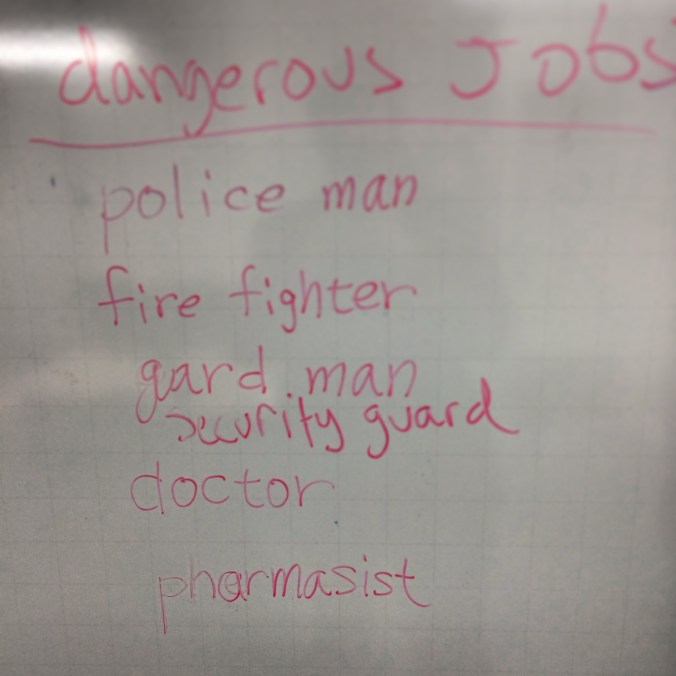 dangerous Jobs
police man
fire fighter
gard man
security guard
doctor
pharmasist